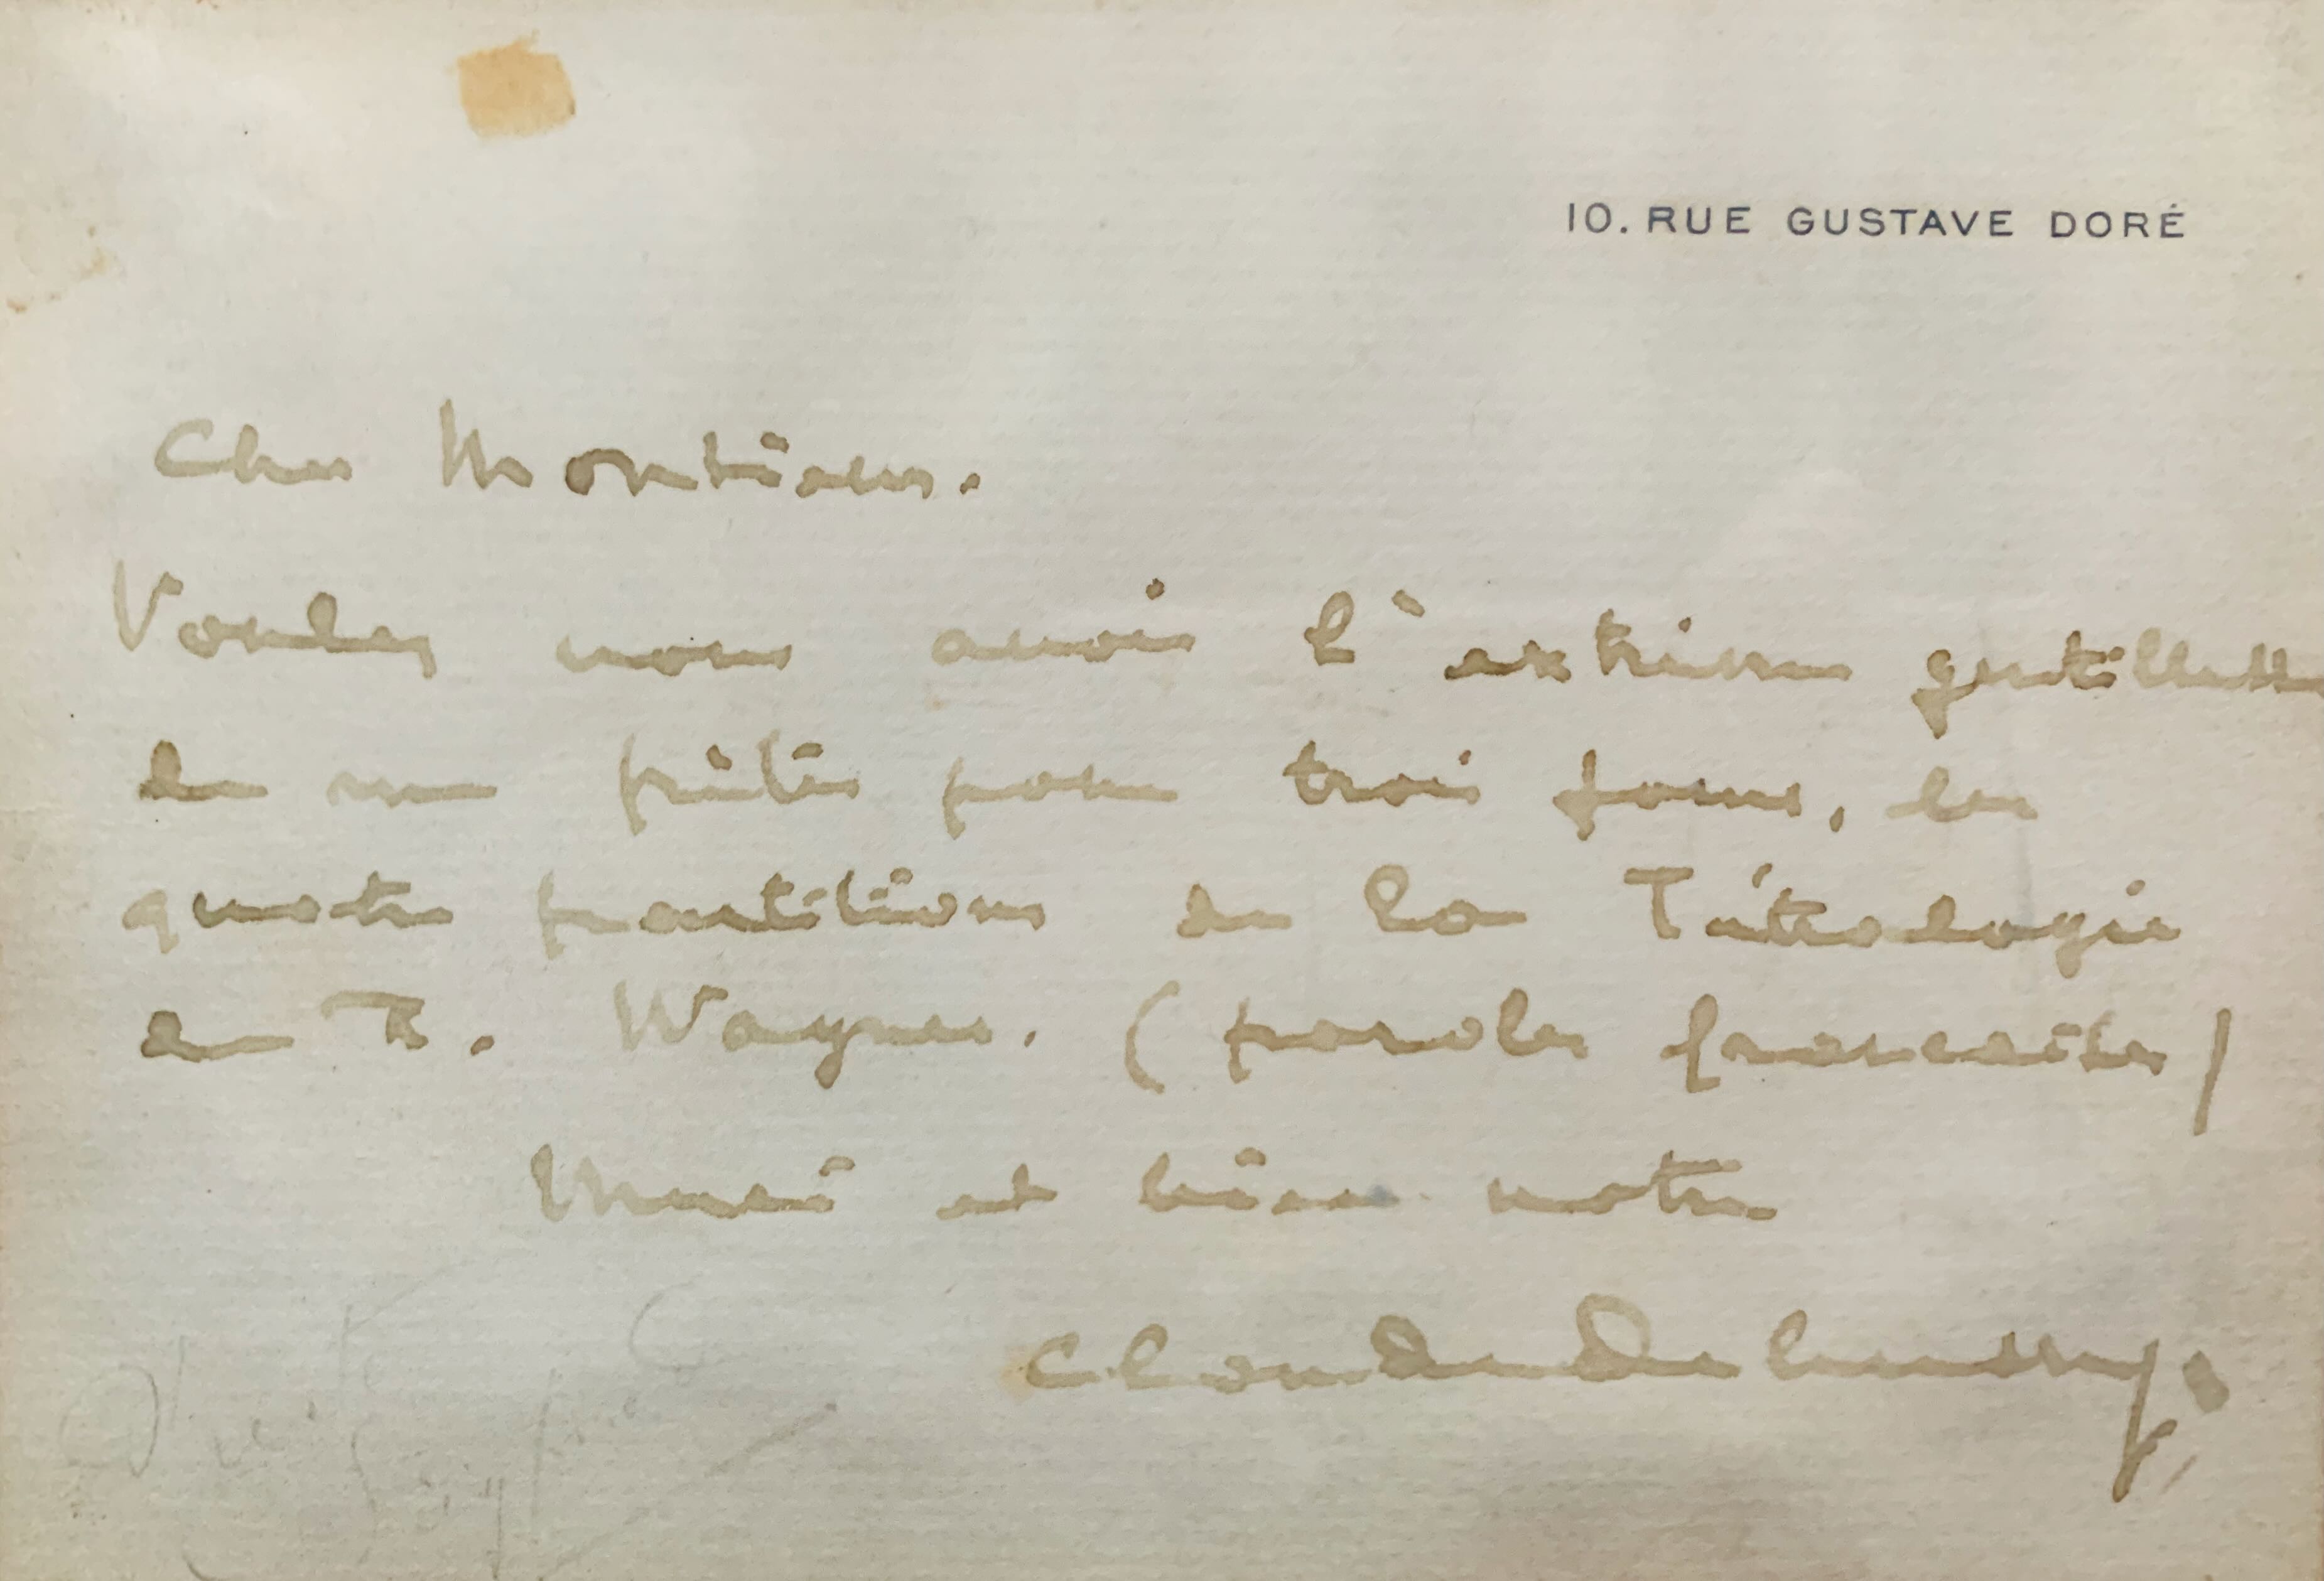 10. RUE GUSTAVE DORÉ
Cher Monsieur.
Voulez vous avoir l'extrême gentillesse
de me prêter pour trois jours, les
quatre partitions de la Tétralogie
de R. Wagner. (paroles françaises)
Merci et bien votre
Claude Debussy.